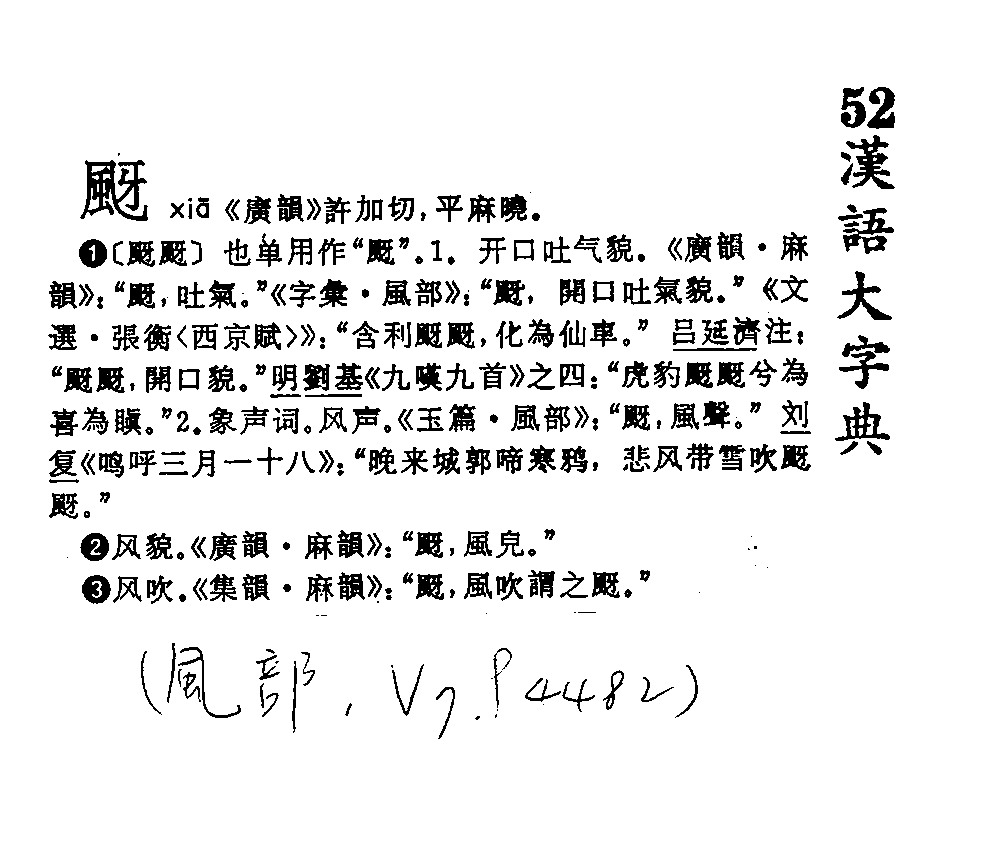 52漢語大字典
颬 xiā《廣韻》許加切,平麻曉。
❶〔颬颬〕也单用作“颬”。1. 开口吐气貌。《廣韻·麻
韻》:“颬,吐氣。”《字彙·風部》:“颬,開口吐氣貌。”《文
選·張衡〈西京賦〉》:“含利颬颬,化為仙車。”吕延濟注:
“颬颬,開口貌。”明劉基《九嘆九首》之四:“虎豹颬颬兮為
喜為瞋。”2.象声词。风声。《玉篇·風部》:“颬,風聲。”刘
复《鸣呼三月一十八》:“晚来城郭啼寒鸦,悲风带雪吹颬
颬。”
❷风貌。《廣韻·麻韻》:“颬,風皃。”
❸风吹。《集韻·麻韻》:“颬,風吹謂之颬。”
(風部, V7.P4482)